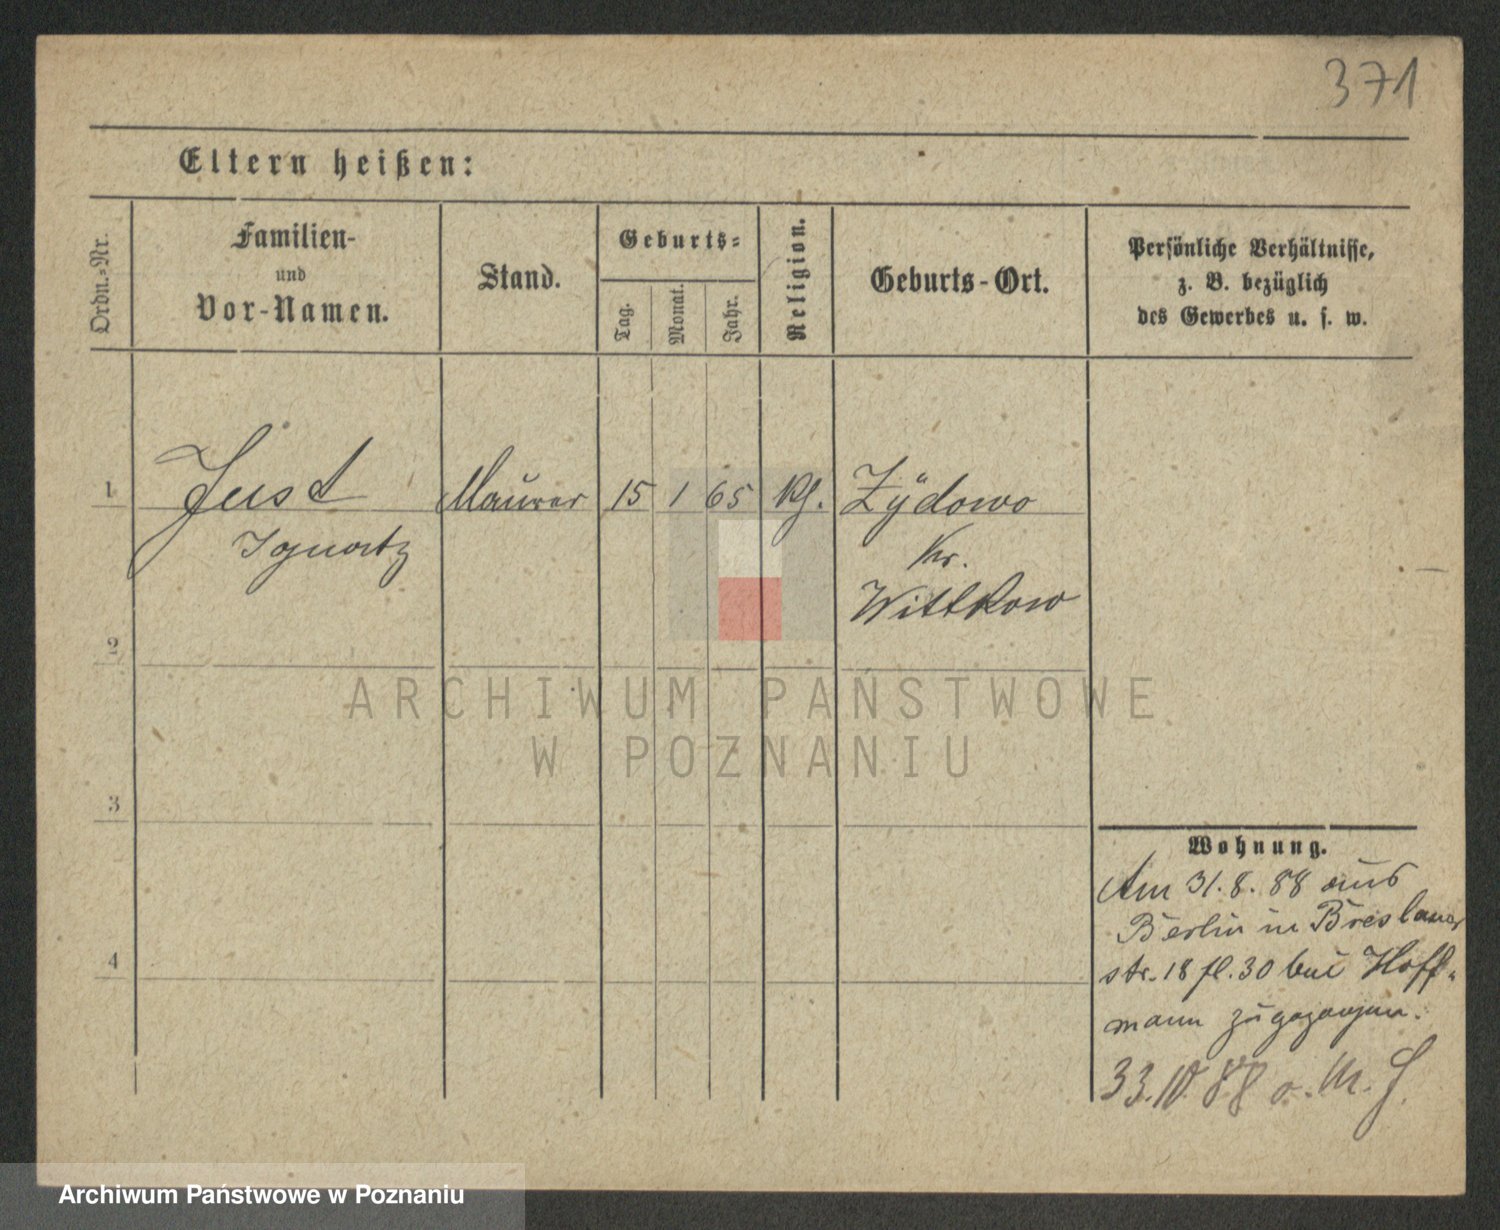 371
Eltern heißen:
Ordn.=Nr.
Familien-
und
Vor-Namen.
Stand.
Geburts=
Tag.
Monat.
Jahr.
Religion.
Geburts-Ort.
Persönliche Verhältnisse,
z. B. bezüglich
des Gewerbes u. s. w.
1 Just Maurer 15 1 65 Kth. Zÿdowo
Ignatz Kr.
Wittkow
2
ARCHIWUM PAŃSTWOWE
W POZNANIU
3
Wohnung.
Am 31. 8. 88 aus
Berlin in Breslauer
4
str. 18 fl. 30 bei Hoff=
mann zugezogen.
10. 88 o. M.
Archiwum Państwowe w Poznaniu